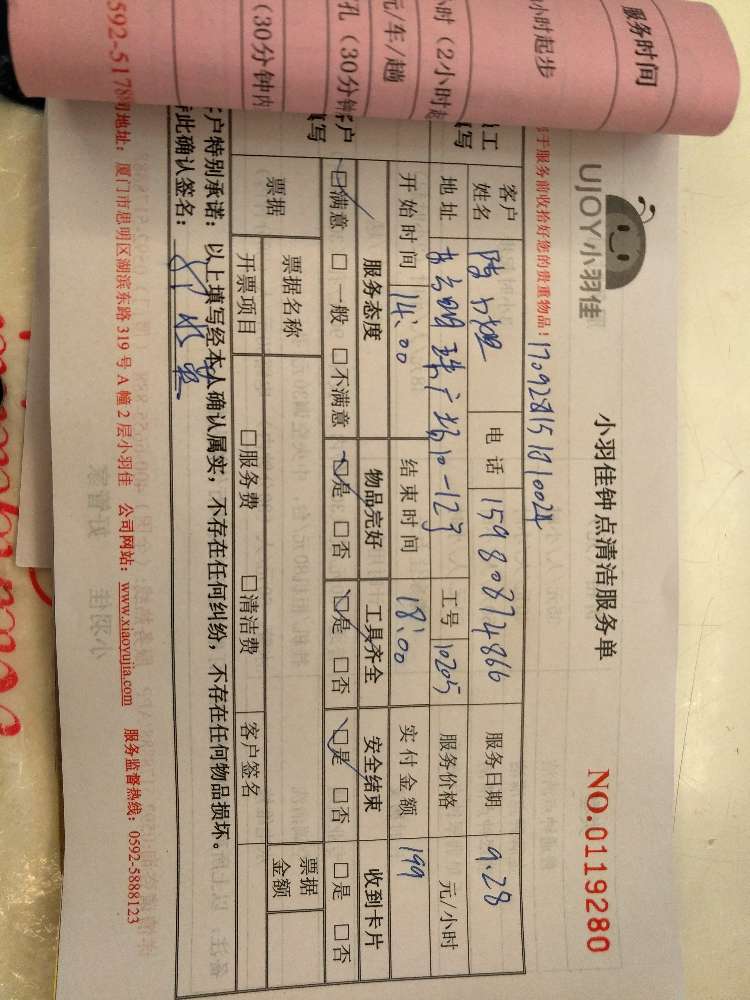 服务时间
小时起步
小时（2小时起
元/车/趟
孔（30分钟
（30分钟内
592-5178
UJOY小羽佳
小羽佳钟点清洁服务单
NO.0119280
于服务前收拾好您的贵重物品！
170928151810024
客户姓名 电话 15980874866 服务日期 9.28
地址 明珠广场10-123 工号 10205 服务价格 元/小时
开始时间 14:00 结束时间 18:00 实付金额 199
服务态度 物品完好 工具齐全 安全结束 收到卡片
☑满意 □一般 □不满意 ☑是 □否 ☑是 □否 ☑是 □否 □是 □否
票据 票据名称 票据金额
开票项目 □服务费 □清洁费 客户签名
客户特别承诺：以上填写经本人确认属实，不存在任何纠纷，不存在任何物品损坏。
此确认签名：
司地址：厦门市思明区湖滨东路319号A幢2层小羽佳 公司网站：www.xiaoyujia.com 服务监督热线：0592-5888123